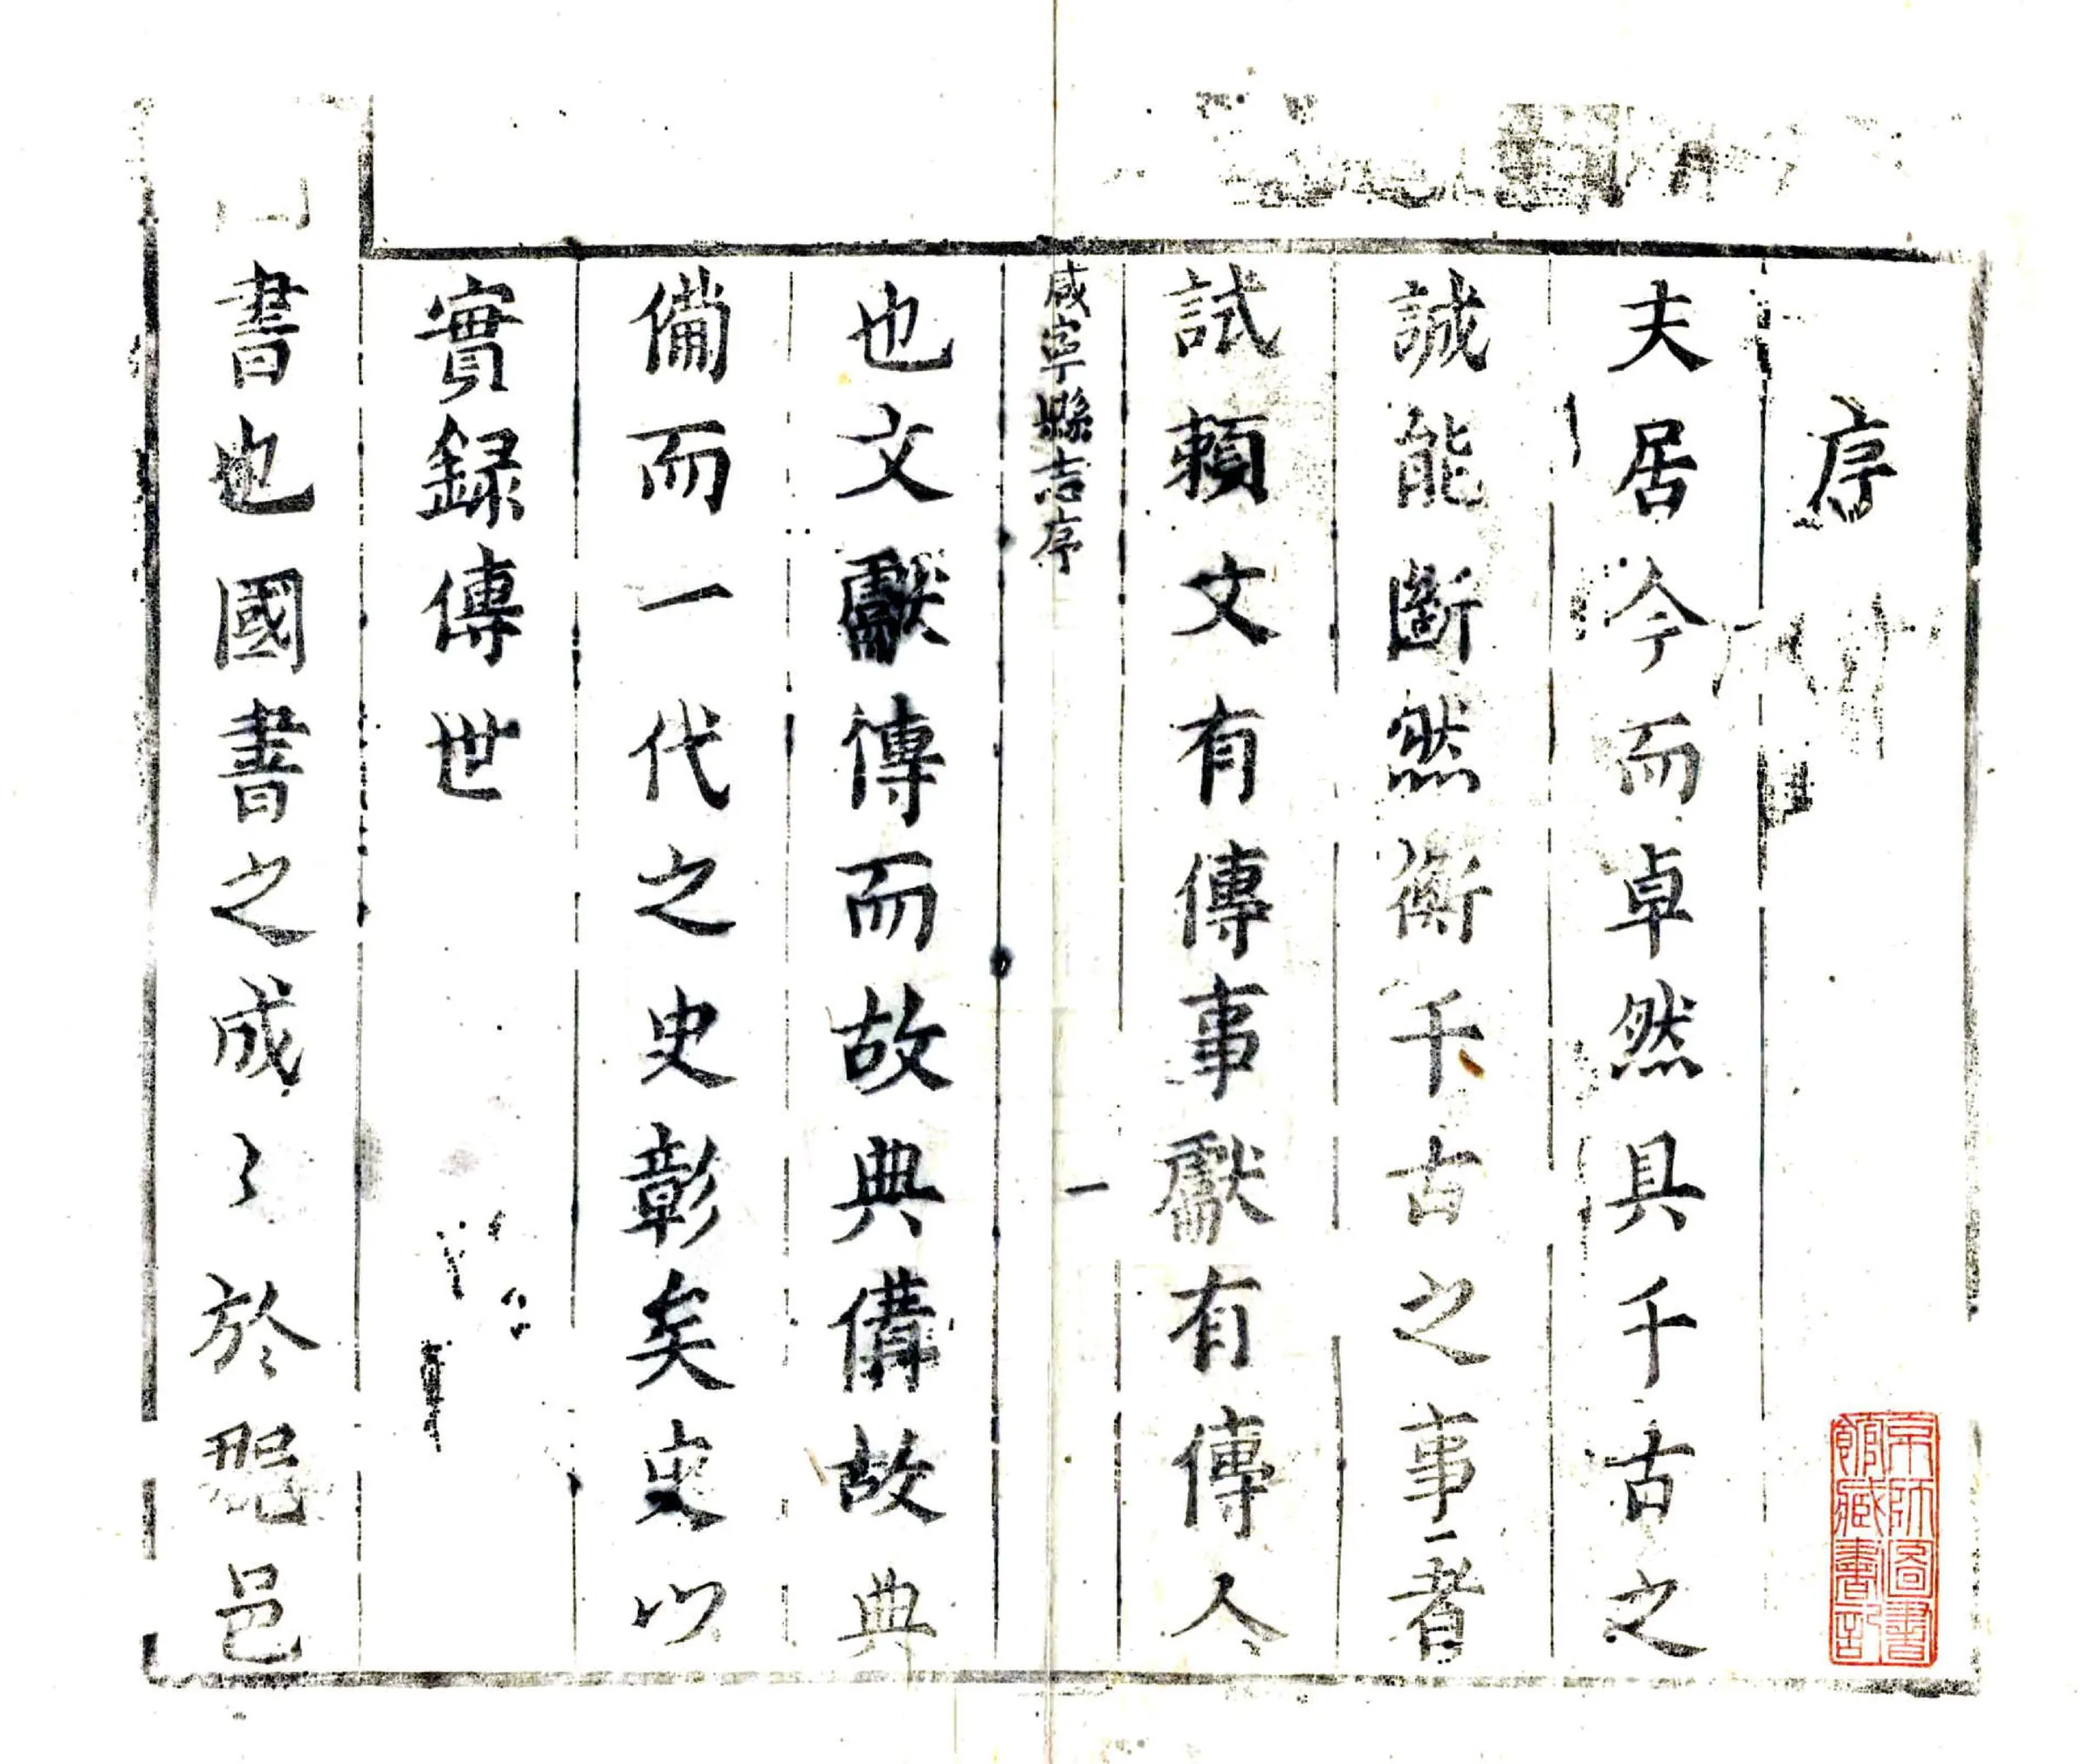 序
夫居今而卓然具千古之
誠能斷然衡千古之事者
試賴文有傳事獻有傳人
咸寧縣志序
一
也文獻傳而故典備故典
備而一代之史彰矣史以
實録傳世
書也國書之成々於郡邑
京師圖書
館藏書記